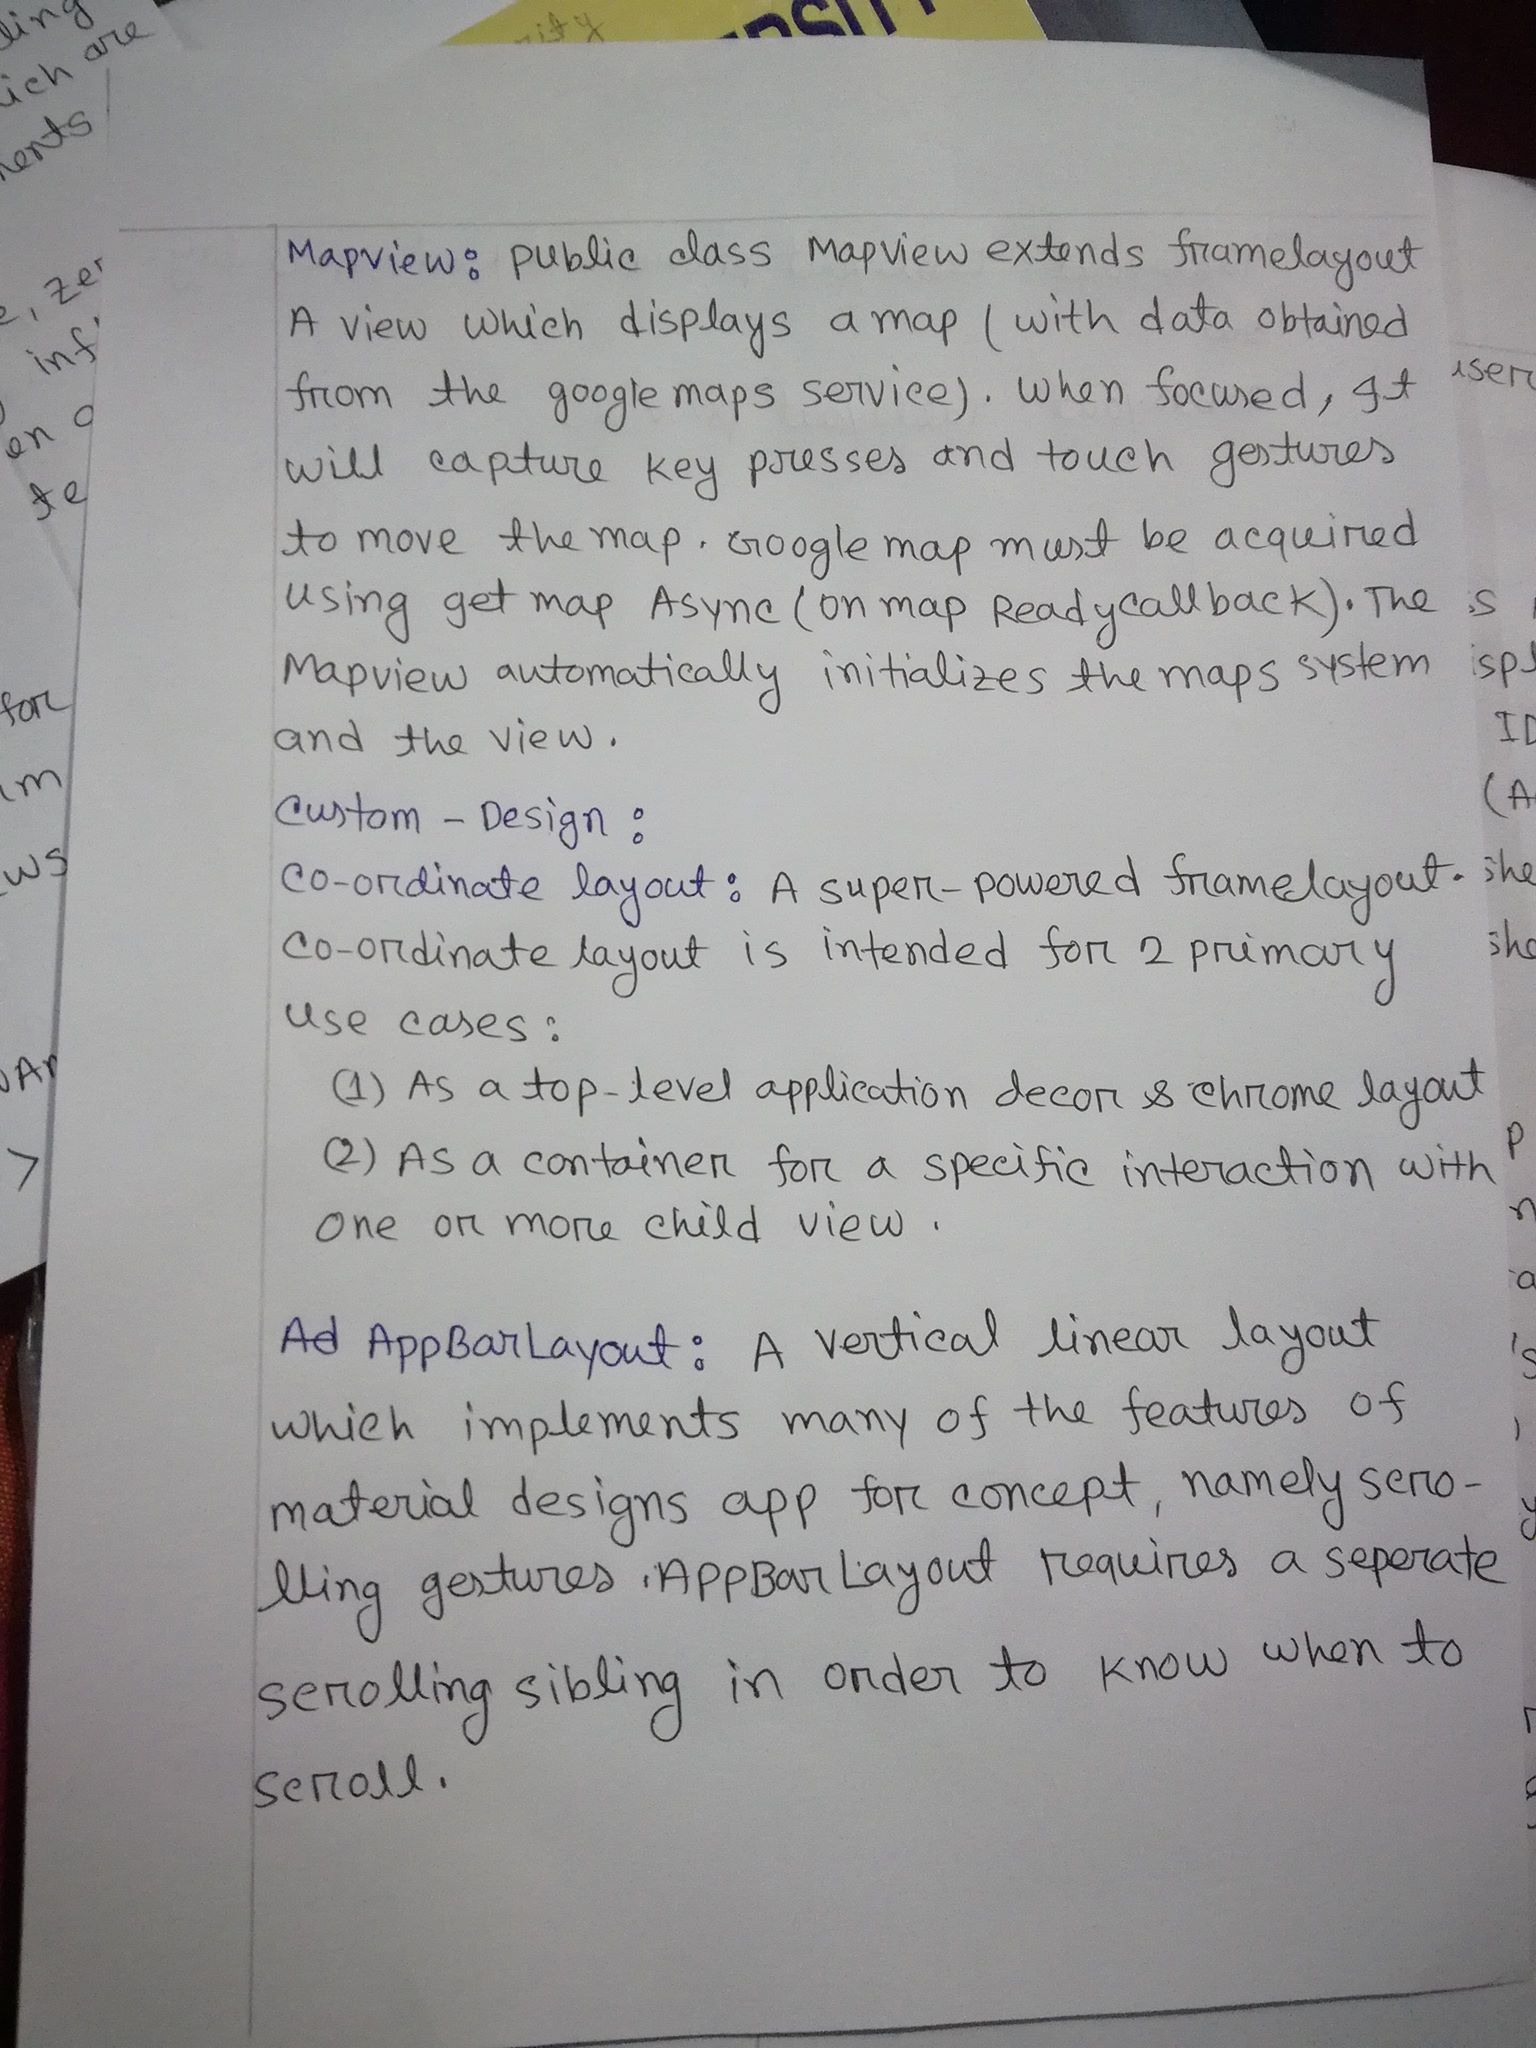 Mapview: public class Mapview extends framelayout
A view which displays a map (with data obtained
from the google maps service). When focused, It
will capture key presses and touch gestures
to move the map. Google map must be acquired
using get map Async (on map Ready callback). The
Mapview automatically initializes the maps system
and the view.
Custom - Design :
Co-ordinate layout: A super-powered framelayout.
Co-ordinate layout is intended for 2 primary
use cases:
(1) As a top-level application decor & chrome layout
(2) As a container for a specific interaction with
one or more child view.
Ad AppBarLayout: A vertical linear layout
which implements many of the features of
material designs app for concept, namely scro-
lling gestures. AppBar Layout requires a seperate
scrolling sibling in order to know when to
scroll.